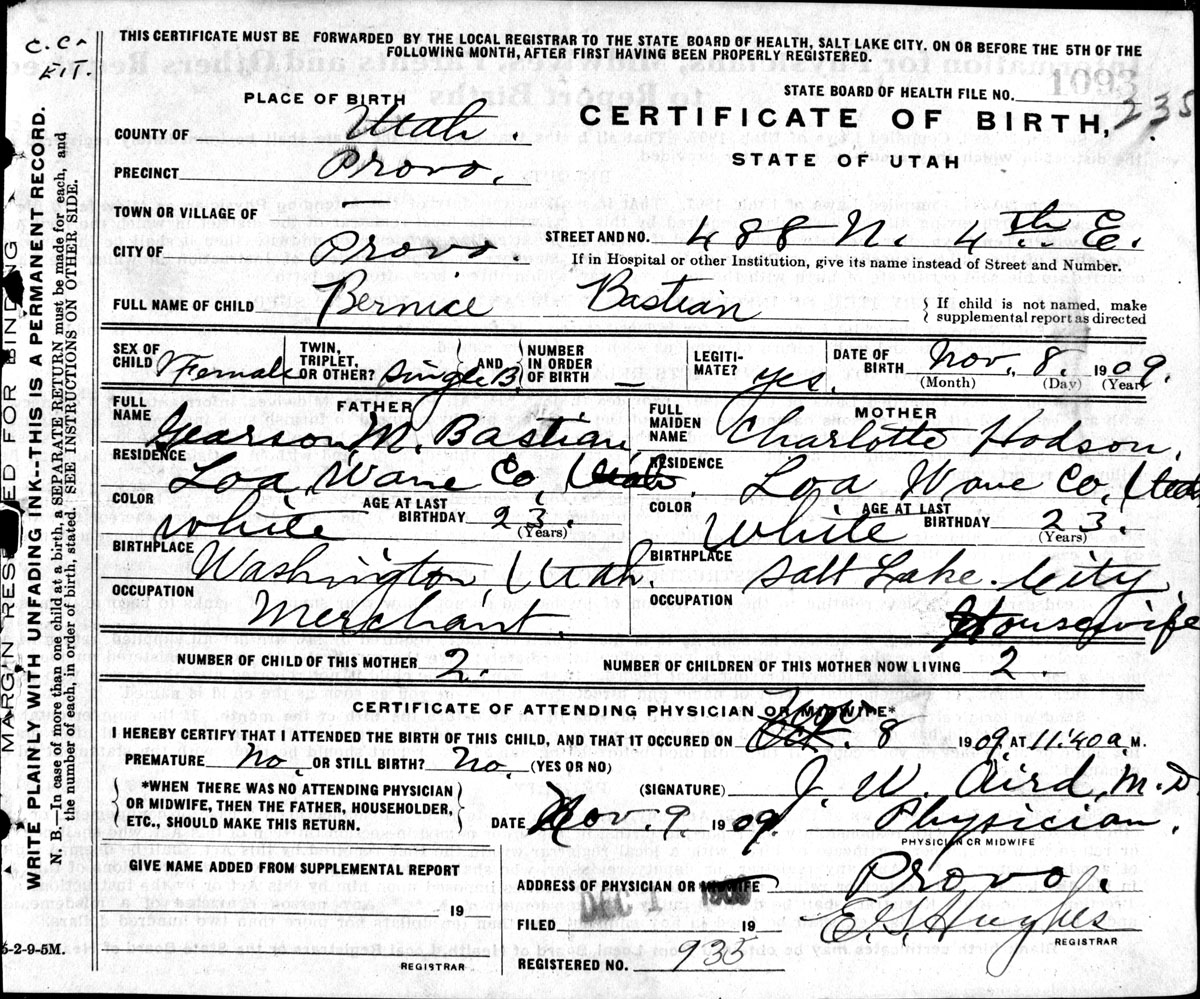 C. C.
THIS CERTIFICATE MUST BE FORWARDED BY THE LOCAL REGISTRAR TO THE STATE BOARD OF HEALTH, SALT LAKE CITY, ON OR BEFORE THE 5TH OF THE
FOLLOWING MONTH, AFTER FIRST HAVING BEEN PROPERLY REGISTERED.
STATE BOARD OF HEALTH FILE NO. 1093
235
PLACE OF BIRTH
CERTIFICATE OF BIRTH,
STATE OF UTAH
COUNTY OF Utah.
PRECINCT Provo.
TOWN OR VILLAGE OF
CITY OF Provo
STREET AND NO. 488 N. 4th E.
If in Hospital or other Institution, give its name instead of Street and Number.
FULL NAME OF CHILD Bernice Bastian
If child is not named, make
supplemental report as directed
SEX OF CHILD Female
TWIN, TRIPLET, OR OTHER? Single B
AND NUMBER IN ORDER OF BIRTH —
LEGITI-MATE? yes.
DATE OF BIRTH Nov. 8. 1909.
(Month) (Day) (Year)
FATHER
FULL NAME Gearson M. Bastian
MOTHER
FULL MAIDEN NAME Charlotte Hodson.
RESIDENCE Loa Wane Co, Utah.
RESIDENCE Loa Wane Co, Utah
COLOR White
AGE AT LAST BIRTHDAY 23.
(Years)
COLOR White
AGE AT LAST BIRTHDAY 23.
(Years)
BIRTHPLACE Washington, Utah.
BIRTHPLACE Salt Lake City
OCCUPATION Merchant.
OCCUPATION Housewife
NUMBER OF CHILD OF THIS MOTHER 2.
NUMBER OF CHILDREN OF THIS MOTHER NOW LIVING 2.
CERTIFICATE OF ATTENDING PHYSICIAN OR MIDWIFE*
I HEREBY CERTIFY THAT I ATTENDED THE BIRTH OF THIS CHILD, AND THAT IT OCCURED ON Oct. 8 1909. AT 11:40 a. M.
PREMATURE No. OR STILL BIRTH? No. (YES OR NO)
(SIGNATURE) J. W. Aird, M.D.
*WHEN THERE WAS NO ATTENDING PHYSICIAN
OR MIDWIFE, THEN THE FATHER, HOUSEHOLDER,
ETC., SHOULD MAKE THIS RETURN.
DATE Nov 9. 1909 Physician.
PHYSICIAN OR MIDWIFE
GIVE NAME ADDED FROM SUPPLEMENTAL REPORT
19
REGISTRAR
ADDRESS OF PHYSICIAN OR MIDWIFE Provo.
FILED DEC 1909 19 E. G. Hughes
REGISTRAR
REGISTERED NO. 935
6-2-9-5M.
MARGIN RESERVED FOR BINDING
WRITE PLAINLY WITH UNFADING INK--THIS IS A PERMANENT RECORD.
N. B.—In case of more than one child at a birth, a SEPARATE RETURN must be made for each, and
the number of each, in order of birth, stated. SEE INSTRUCTIONS ON OTHER SIDE.